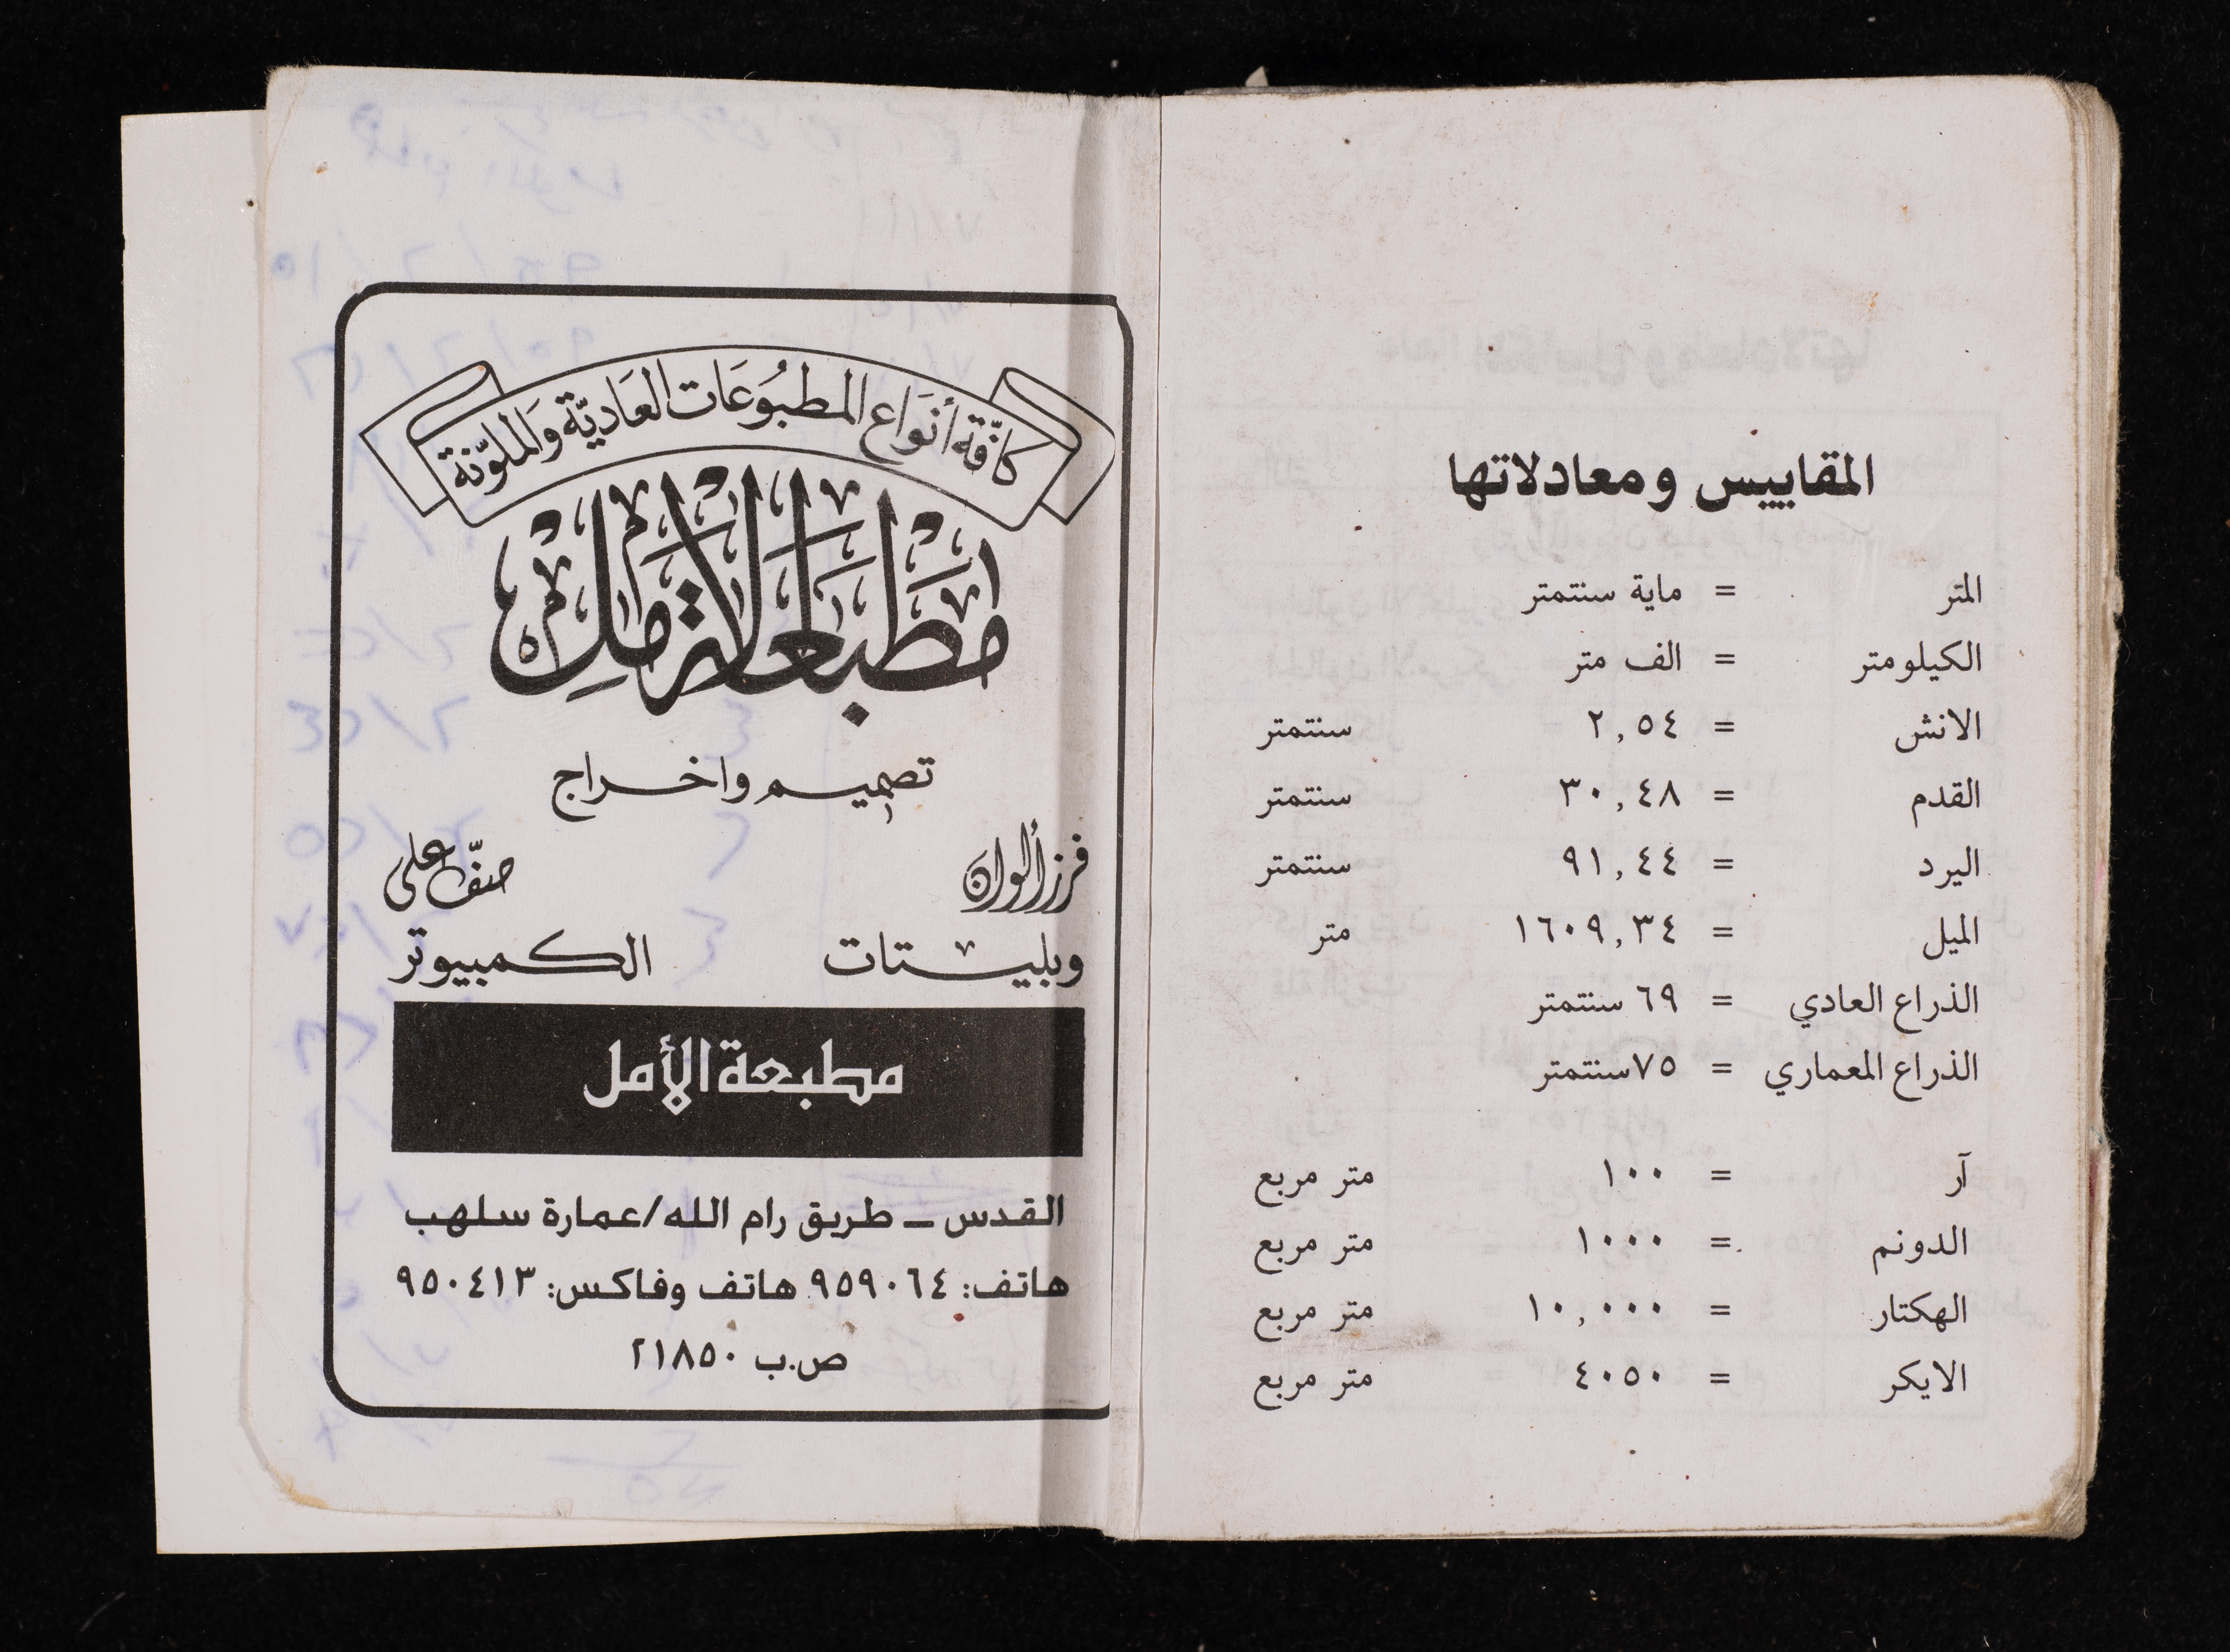 المقاييس ومعادلاتها
المتر = ماية سنتمتر
الكيلومتر = الف متر
الانش = ٢,٥٤ سنتمتر
القدم = ٣٠,٤٨ سنتمتر
اليرد = ٩١,٤٤ سنتمتر
الميل = ١٦٠٩,٣٤ متر
الذراع العادي = ٦٩ سنتمتر
الذراع المعماري = ٧٥سنتمتر
آر = ١٠٠ متر مربع
الدونم = ١٠٠٠ متر مربع
الهكتار = ١٠,٠٠٠ متر مربع
الايكر = ٤٠٥٠ متر مربع
كافّة أنوَاع المطبُوعَات العَاديّة وَالملوّنة
مطبعة الأمل
تصميم واخراج
فرز ألوان صفّ على
وبليتات الكمبيوتر
مطبعة الأمل
القدس - طريق رام الله/عمارة سلهب
هاتف: ٩٥٩٠٦٤ هاتف وفاكس: ٩٥٠٤١٣
ص.ب ٢١٨٥٠